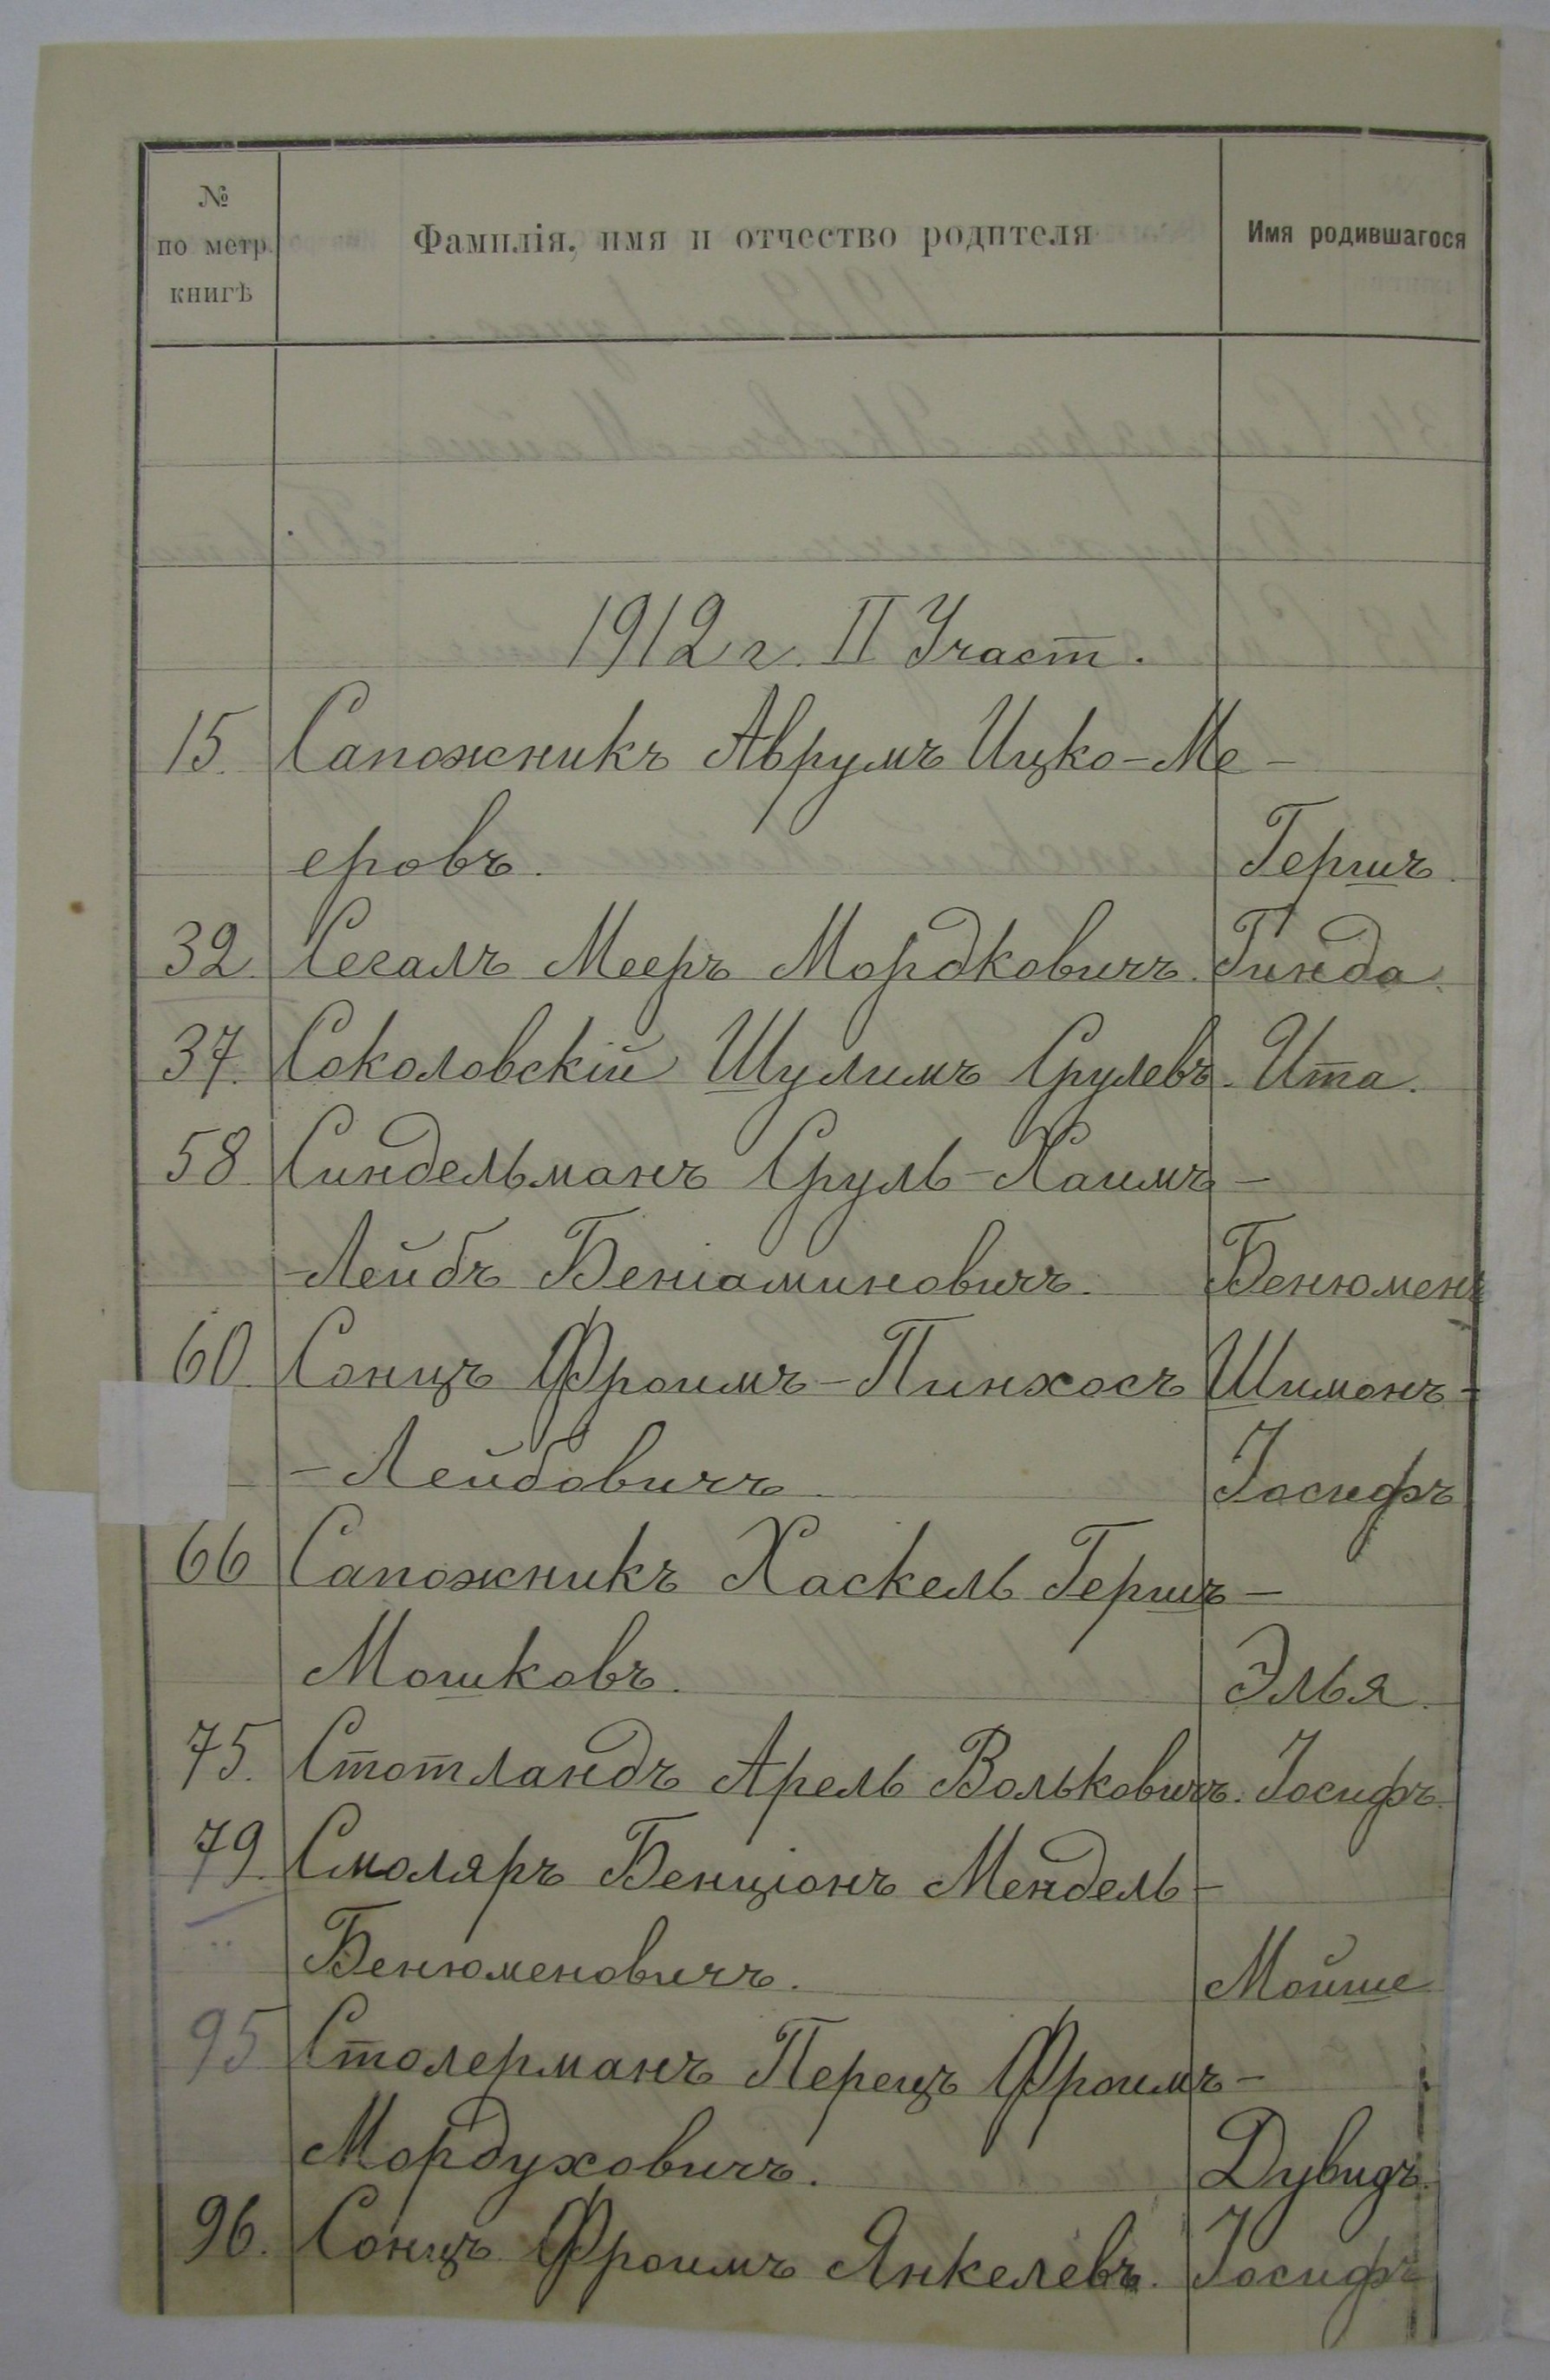 № по метр. книгѣ Фамилія, имя и отчество родителя Имя родившагося
1912 г. II Участ.
15. Сапожникъ Аврумъ Ицко-Ме-
еровъ. Гершъ.
32. Сегалъ Мееръ Мордковичъ. Гинда.
37. Соколовскій Шулимъ Срулевъ. Ита.
58. Синдельманъ Сруль-Хаимъ-
-Лейбъ Беніаминовичъ. Бенюменъ
60. Сонцъ Фроимъ-Пинхосъ Шимонъ-
-Лейбовичъ. Іосифъ
66 Сапожникъ Хаскель Гершъ-
Мошковъ. Элья.
75. Стотландъ Арель Вольковичъ. Іосифъ.
79. Смоляръ Бенціонъ Мендель-
Бенюменовичъ. Мойше
95 Столерманъ Перецъ Фроимъ-
Мордуховичъ. Дувидъ.
96. Сонцъ Фроимъ Янкелевъ. Іосифъ